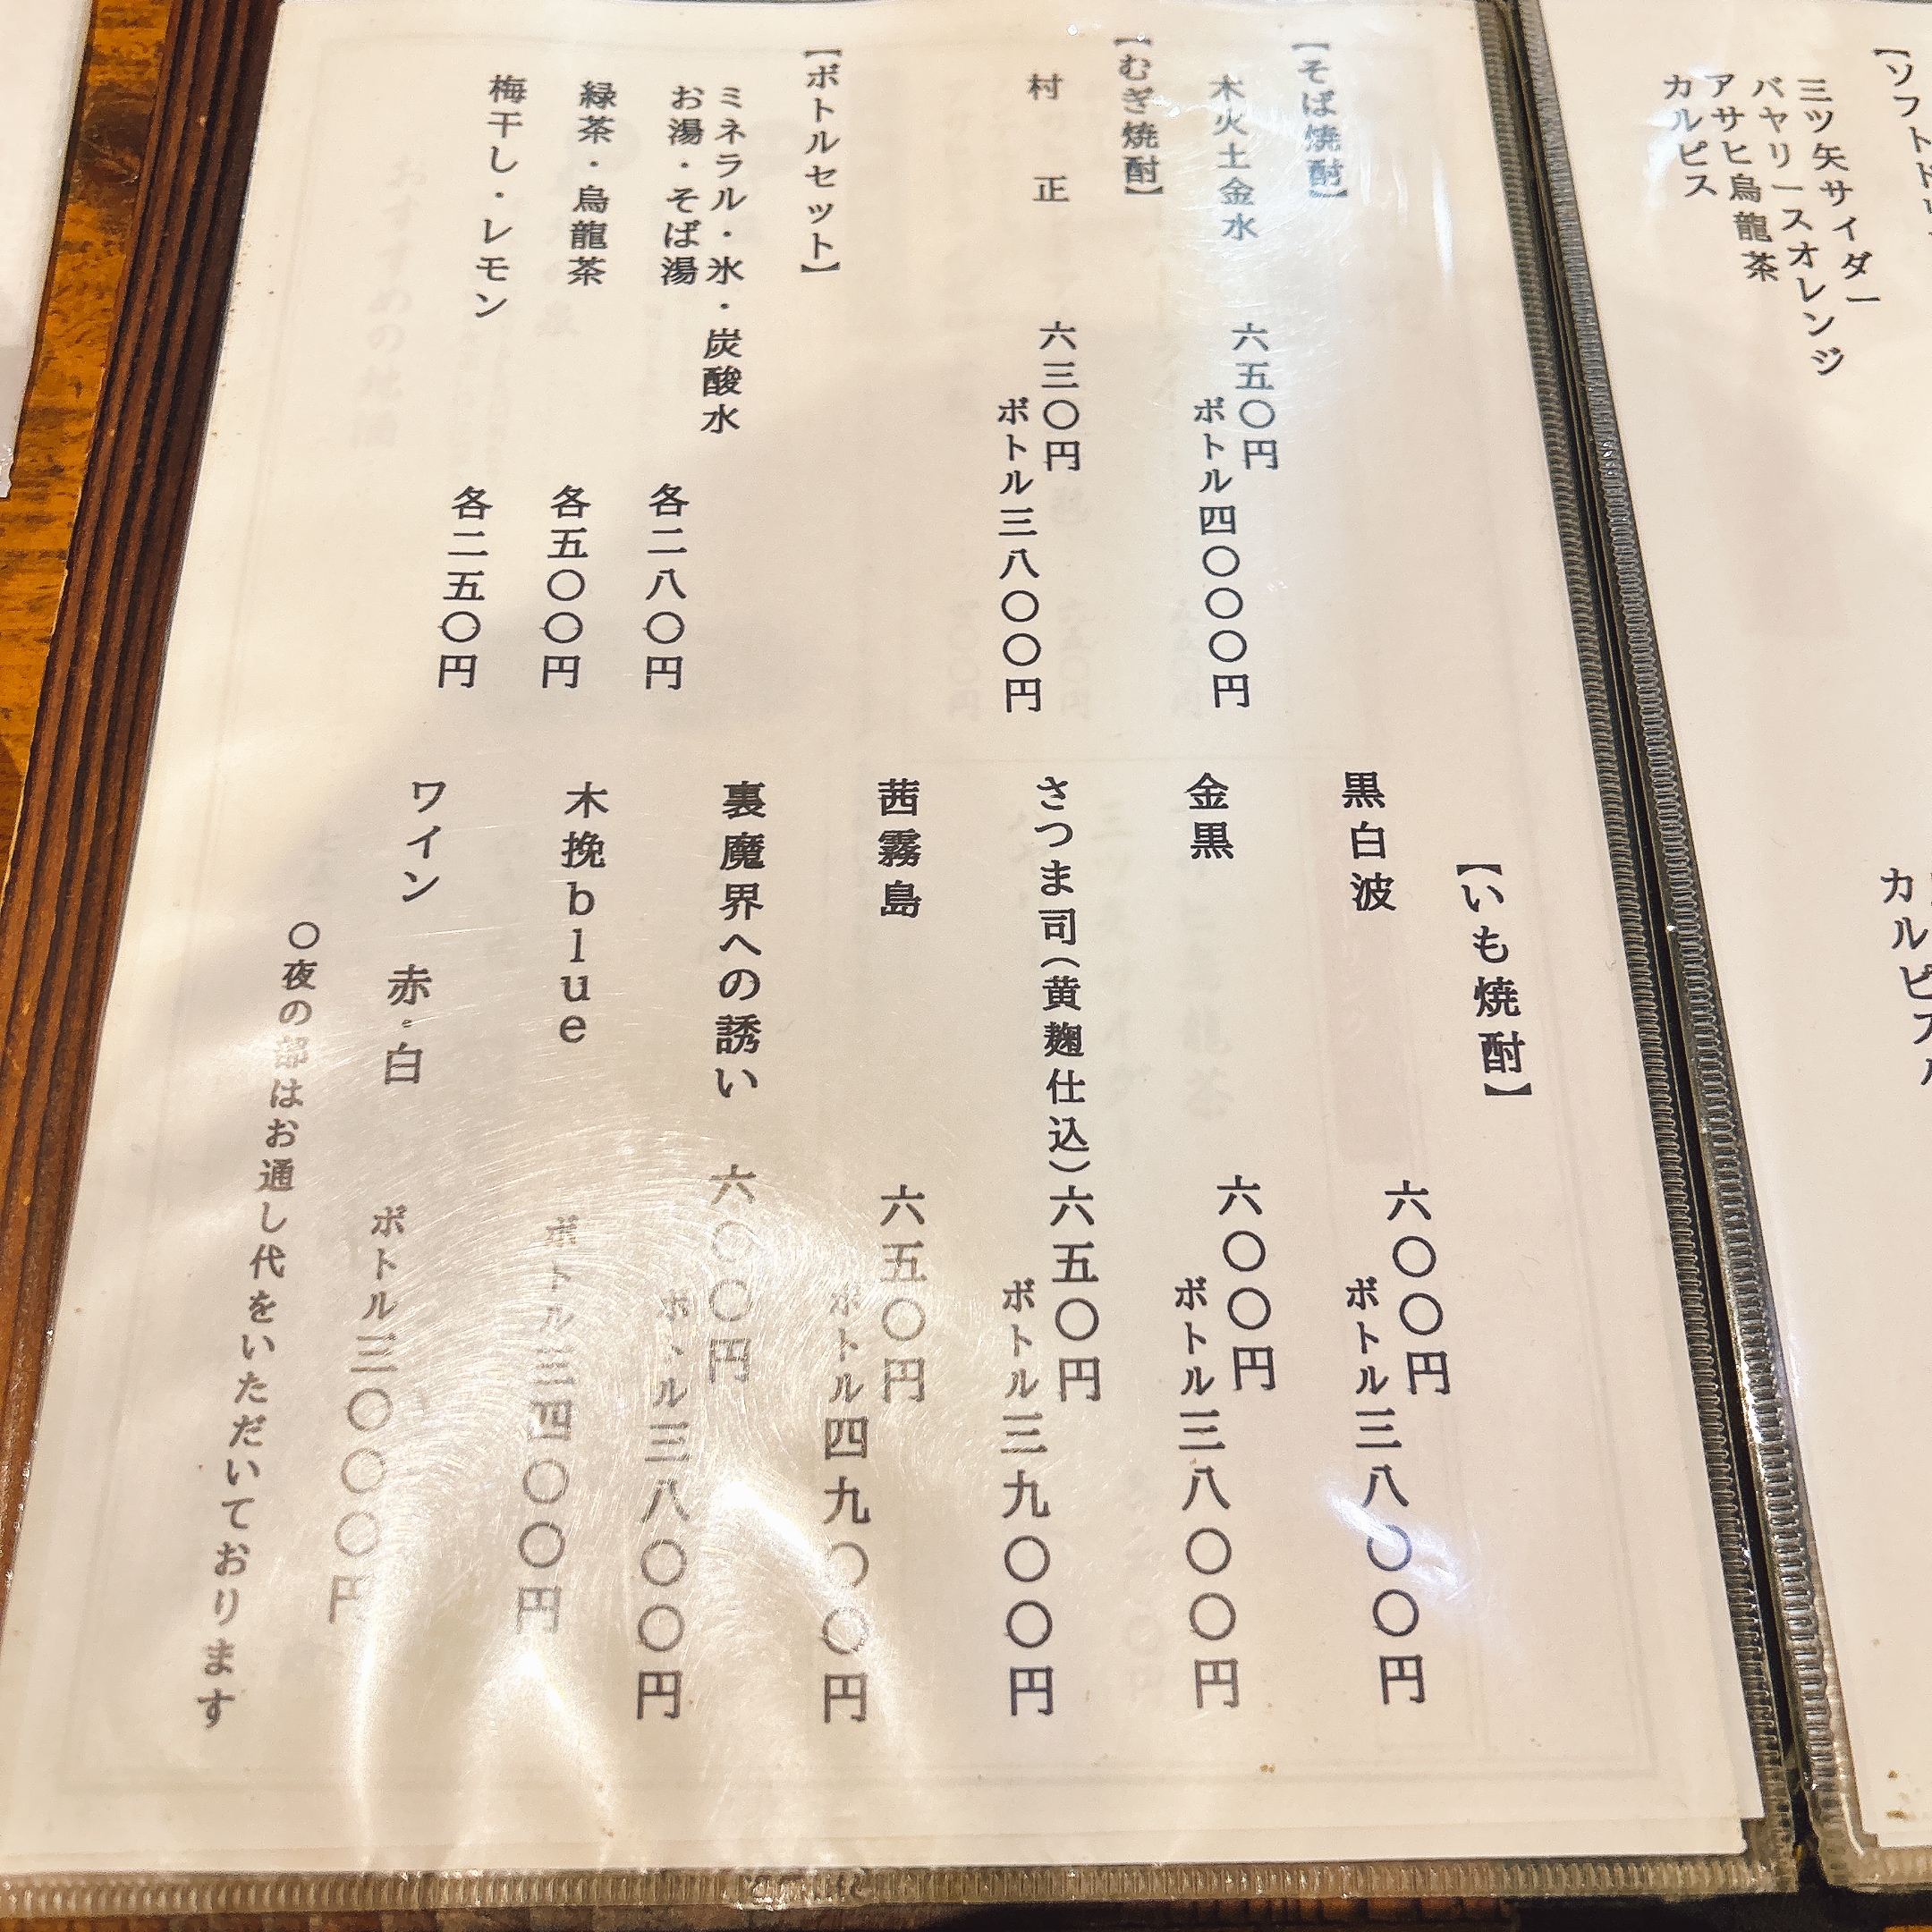 三ツ矢サイダー
バヤリースオレンジ
アサヒ烏龍茶
カルピス
【そば焼酎】
木火土金水
六五〇円
ボトル四〇〇〇円
【むぎ焼酎】
村正
六三〇円
ボトル三八〇〇円
【ボトルセット】
ミネラル・氷・炭酸水
お湯・そば湯
各二八〇円
緑茶・烏龍茶
各五〇〇円
梅干し・レモン
各二五〇円
【いも焼酎】
黒白波
六〇〇円
ボトル三八〇〇円
金黒
六〇〇円
ボトル三八〇〇円
さつま司(黄麹仕込)六五〇円
ボトル三九〇〇円
茜霧島
六五〇円
ボトル四九〇〇円
裏魔界への誘い
六〇〇円
ボトル三八〇〇円
木挽blue
ボトル三四〇〇円
ワイン 赤・白
ボトル三〇〇〇円
〇夜の部はお通し代をいただいております